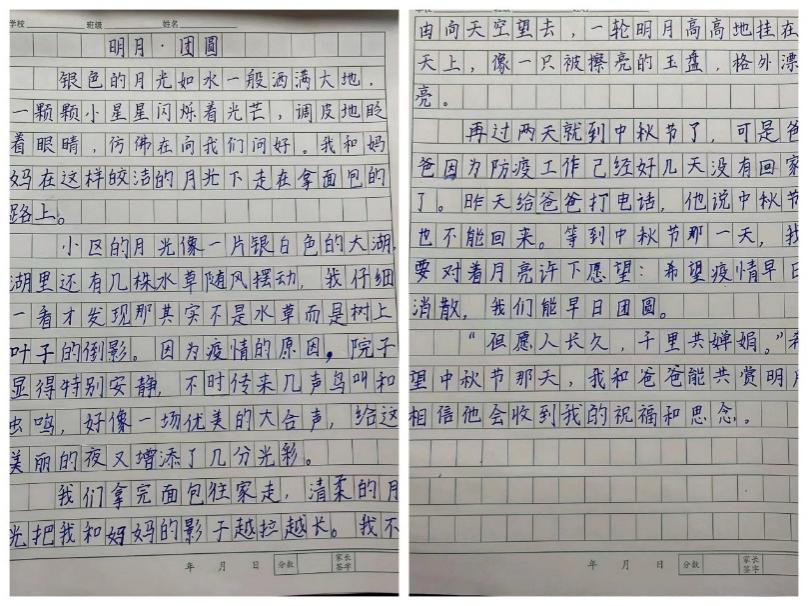 学校 班级 姓名
明月·团圆
银色的月光如水一般洒满大地，
一颗颗小星星闪烁着光芒，调皮地眨
着眼睛，仿佛在向我们问好。我和妈
妈在这样皎洁的月光下走在拿面包的
路上。
小区的月光像一片银白色的大湖，
湖里还有几株水草随风摆动，我仔细
一看才发现那其实不是水草而是树上
叶子的倒影。因为疫情的原因，院子
显得特别安静，不时传来几声鸟叫和
虫鸣，好像一场优美的大合声，给这
美丽的夜又增添了几分光彩。
我们拿完面包往家走，清柔的月
光把我和妈妈的影子越拉越长。我不
年 月 日 分数 家长签字
由向天空望去，一轮明月高高地挂在
天上，像一只被擦亮的玉盘，格外漂
亮。
再过两天就到中秋节了，可是爸
爸因为防疫工作已经好几天没有回家
了。昨天给爸爸打电话，他说中秋节
也不能回来。等到中秋节那一天，我
要对着月亮许下愿望：希望疫情早日
消散，我们能早日团圆。
“但愿人长久，千里共婵娟。”希
望中秋节那天，我和爸爸能共赏明月
相信他会收到我的祝福和思念。
年 月 日 分数 家长签字